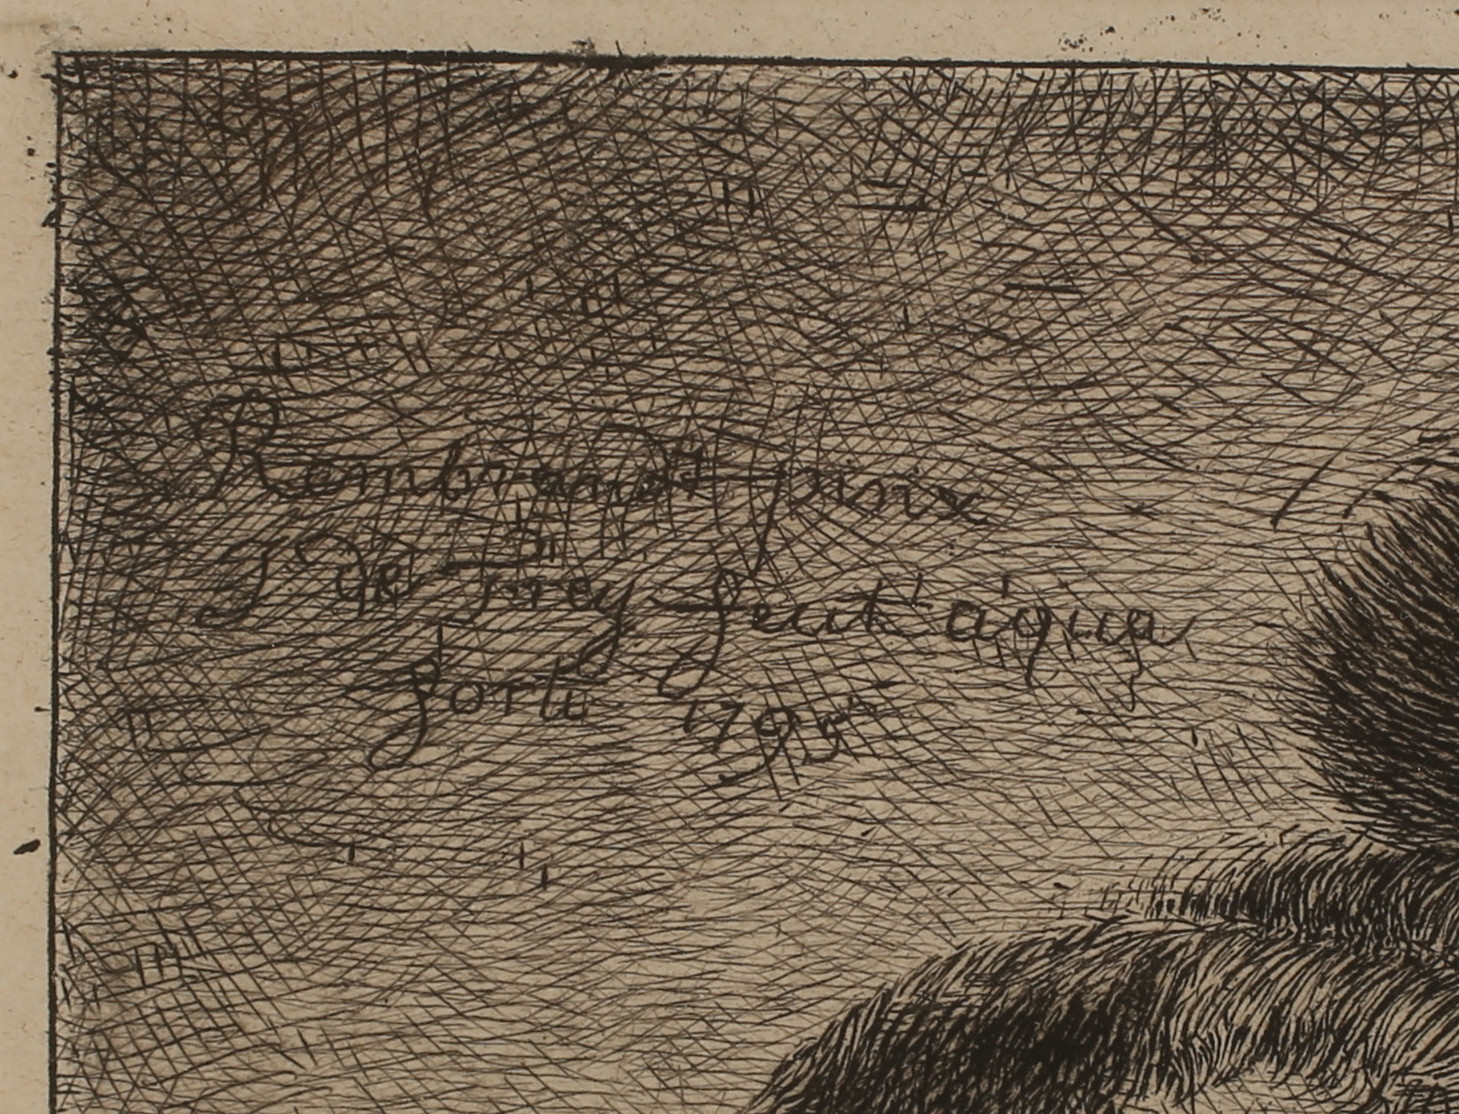 Rembrandt pinix
J de Frey fecit aìqua
forti 1795